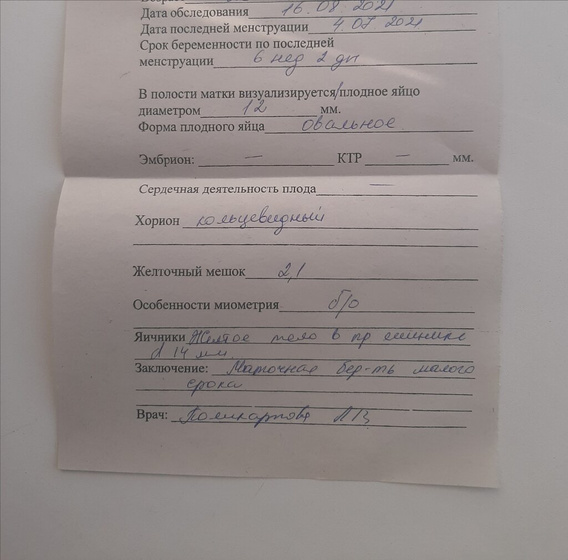 Дата обследования 16.08 2021
Дата последней менструации 4.07 2021
Срок беременности по последней
менструации 6 нед 2 дн
В полости матки визуализируется/плодное яйцо
диаметром 12 мм.
Форма плодного яйца овальное
Эмбрион: — КТР — мм.
Сердечная деятельность плода —
Хорион кольцевидный
Желточный мешок 2,1
Особенности миометрия б/о
Яичники Желтое тело в пр яичнике
d 14 мм
Заключение: Маточная бер-ть малого
срока
Врач: